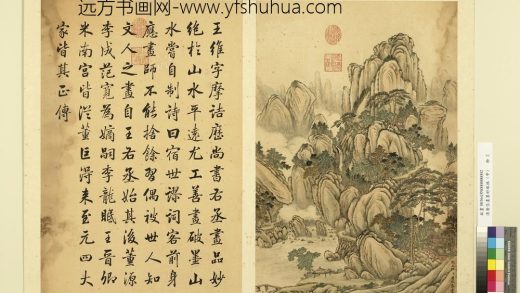 远方书画网-www.yfshuhua.com
王维字摩诘歴尚書右丞畫品妙
绝於山水平逺尤工善畫破墨山
水嘗自制詩曰宿世謬詞客前身
應畫師不能捨餘習偶被世人知
文人之畫自王右丞始其後董源
李成范寬為嫡嗣李龍眠王晉卿
米南宫皆從董巨得來至元四大
家皆其正傳